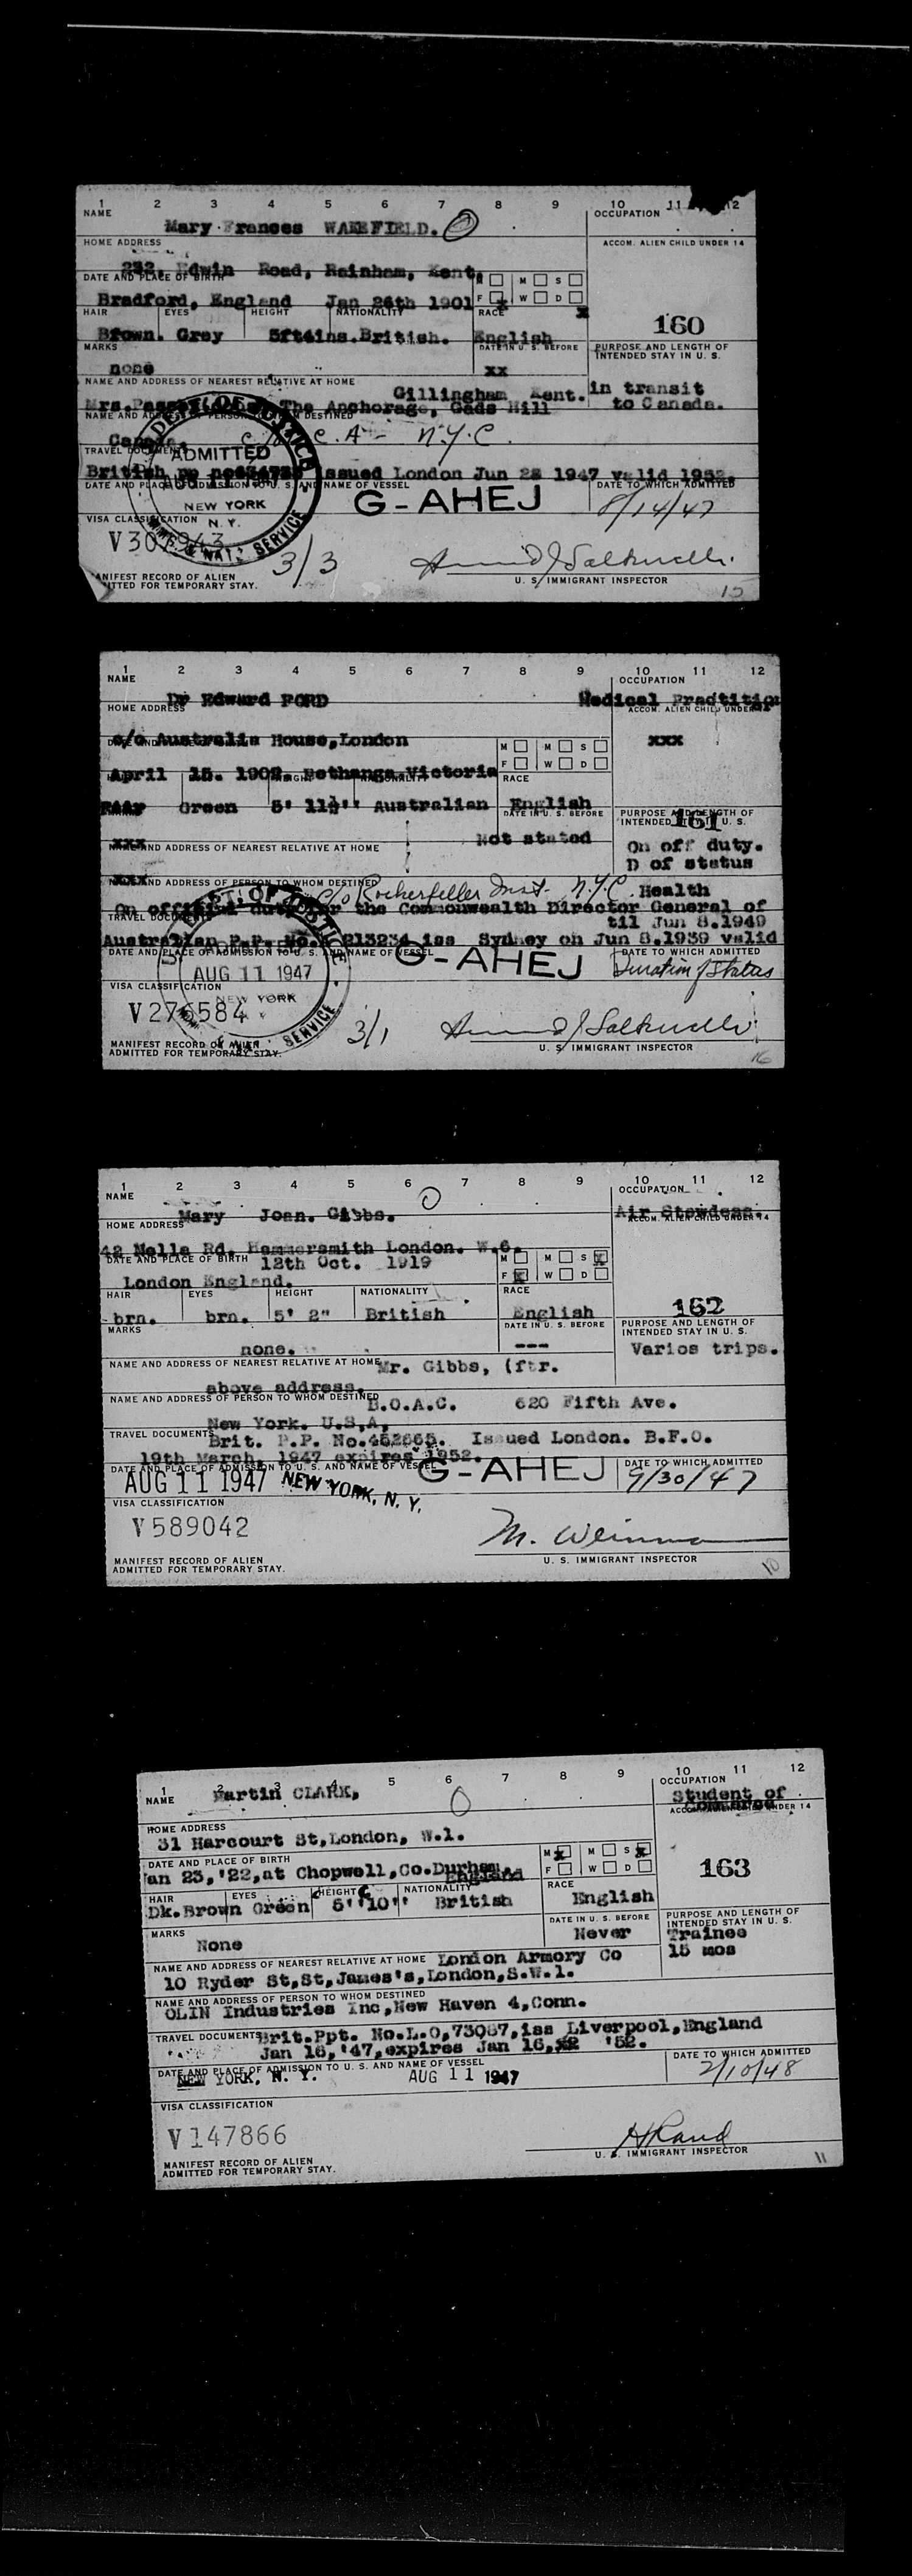 1 2 3 4 5 6 7 8 9 10 11 12
NAME OCCUPATION
Mary Frances WAKEFIELD.
HOME ADDRESS ACCOM. ALIEN CHILD UNDER 14
232, Edwin Road, Rainham, Kent,
DATE AND PLACE OF BIRTH M M S
Bradford, England Jan 26th 1901 F x W D x
HAIR EYES HEIGHT NATIONALITY RACE
160
Brown. Grey 5ft4ins. British. English
MARKS DATE IN U. S. BEFORE PURPOSE AND LENGTH OF INTENDED STAY IN U. S.
none xx
NAME AND ADDRESS OF NEAREST RELATIVE AT HOME
Gillingham Kent. in transit
Mrs. The Anchorage, Gads Hill to Canada.
NAME AND ADDRESS OF PERSON TO WHOM DESTINED
Canada. N.Y.C.
TRAVEL DOCUMENTS
British pp issued London Jun 28 1947 valid 1952.
DATE AND PLACE OF ADMISSION TO U. S. AND NAME OF VESSEL DATE TO WHICH ADMITTED
ADMITTED
NEW YORK
N. Y.
G-AHEJ 8/14/47
VISA CLASSIFICATION
V307943
3/3
MANIFEST RECORD OF ALIEN
ADMITTED FOR TEMPORARY STAY.
U. S. IMMIGRANT INSPECTOR
15
1 2 3 4 5 6 7 8 9 10 11 12
NAME OCCUPATION
Dr Edward FORD Medical Practition
HOME ADDRESS ACCOM. ALIEN CHILD UNDER 14
c/o Australia House, London xxx
DATE AND PLACE OF BIRTH M M S
F W D
April 15. 1902. Bethanga Victoria
HAIR EYES HEIGHT NATIONALITY RACE
Green 5' 11½'' Australian English
DATE IN U. S. BEFORE PURPOSE AND LENGTH OF INTENDED STAY IN U. S.
161
xxx Not stated
NAME AND ADDRESS OF NEAREST RELATIVE AT HOME On off duty.
D of status
xxx
NAME AND ADDRESS OF PERSON TO WHOM DESTINED
c/o Rockerfeller Inst- N.Y.C. Health
On official duty for the Commonwealth Director General of
TRAVEL DOCUMENTS til Jun 8.1949
Australian P.P. No. 213234 iss Sydney on Jun 8.1939 valid
DATE AND PLACE OF ADMISSION TO U. S. AND NAME OF VESSEL DATE TO WHICH ADMITTED
AUG 11 1947 G-AHEJ Duration of Status
NEW YORK
VISA CLASSIFICATION
V276584
3/1
MANIFEST RECORD OF ALIEN
ADMITTED FOR TEMPORARY STAY.
U. S. IMMIGRANT INSPECTOR
16
1 2 3 4 5 6 7 8 9 10 11 12
NAME OCCUPATION
Mary Joan. Gibbs. Air Stewdess.
HOME ADDRESS ACCOM. ALIEN CHILD UNDER 14
42 Nella Rd. Hammersmith London. W.6.
DATE AND PLACE OF BIRTH 12th Oct. 1919 M M S x
London England. F x W D
HAIR EYES HEIGHT NATIONALITY RACE
162
brn. brn. 5' 2" British English
MARKS DATE IN U. S. BEFORE PURPOSE AND LENGTH OF INTENDED STAY IN U. S.
none. --- Varios trips.
NAME AND ADDRESS OF NEAREST RELATIVE AT HOME Mr. Gibbs, (ftr.
above address.
NAME AND ADDRESS OF PERSON TO WHOM DESTINED B.O.A.C. 620 Fifth Ave.
New York. U.S,A,
TRAVEL DOCUMENTS Brit. P.P. No.452665. Issued London. B.F.O.
19th March, 1947 expires 1952.
DATE AND PLACE OF ADMISSION TO U. S. AND NAME OF VESSEL DATE TO WHICH ADMITTED
AUG 11 1947 NEW YORK, N. Y. G-AHEJ 9/30/47
VISA CLASSIFICATION
V589042
M. Weinman
MANIFEST RECORD OF ALIEN
ADMITTED FOR TEMPORARY STAY.
U. S. IMMIGRANT INSPECTOR
10
1 2 3 4 5 6 7 8 9 10 11 12
NAME OCCUPATION
Martin CLARK, Student of
Commerce
HOME ADDRESS ACCOM. ALIEN CHILD UNDER 14
31 Harcourt St, London, W.1.
DATE AND PLACE OF BIRTH M x M S x
Jan 23,'22, at Chopwell, Co. Durham F W D
England
163
HAIR EYES HEIGHT NATIONALITY RACE
Dk. Brown Green 5' 10'' British English
MARKS DATE IN U. S. BEFORE PURPOSE AND LENGTH OF INTENDED STAY IN U. S.
None Never Trainee
15 mos
NAME AND ADDRESS OF NEAREST RELATIVE AT HOME London Armory Co
10 Ryder St, St, James's, London, S.W.1.
NAME AND ADDRESS OF PERSON TO WHOM DESTINED
OLIN Industries Inc, New Haven 4, Conn.
TRAVEL DOCUMENTS Brit. Ppt. No. L.O, 73087, iss Liverpool, England
Jan 16, '47, expires Jan 16, '52.
DATE AND PLACE OF ADMISSION TO U. S. AND NAME OF VESSEL DATE TO WHICH ADMITTED
NEW YORK, N. Y. AUG 11 1947 2/10/48
VISA CLASSIFICATION
V147866
H Rand
MANIFEST RECORD OF ALIEN
ADMITTED FOR TEMPORARY STAY.
U. S. IMMIGRANT INSPECTOR
11